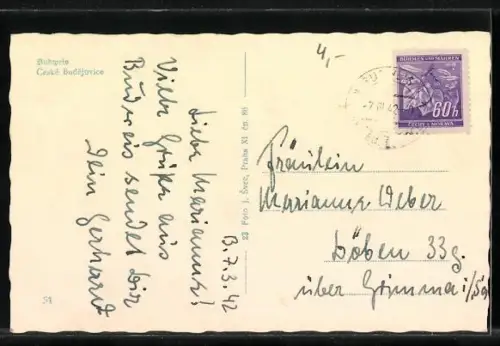 Budweis
České Budějovice
4,-
BÖHMEN UND MÄHREN
60h
ČECHY A MORAVA
7 III 42
Liebe Marianne!
Viele Grüße aus
Budweis sendet Dir
Dein Gerhard
B. 7.3.42
Foto J. Švec, Praha XI čp. 88
Fräulein
Marianne Weber
Döben 33g.
über Grimma i/Sa
54